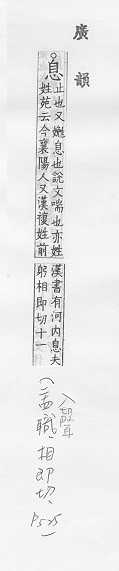 廣韻
息
止也又嬎息也說文喘也亦姓
姓苑云今襄陽人又漢複姓前
漢書有河內息夫
躬相即切十一
入聲
職、相即切、P525)